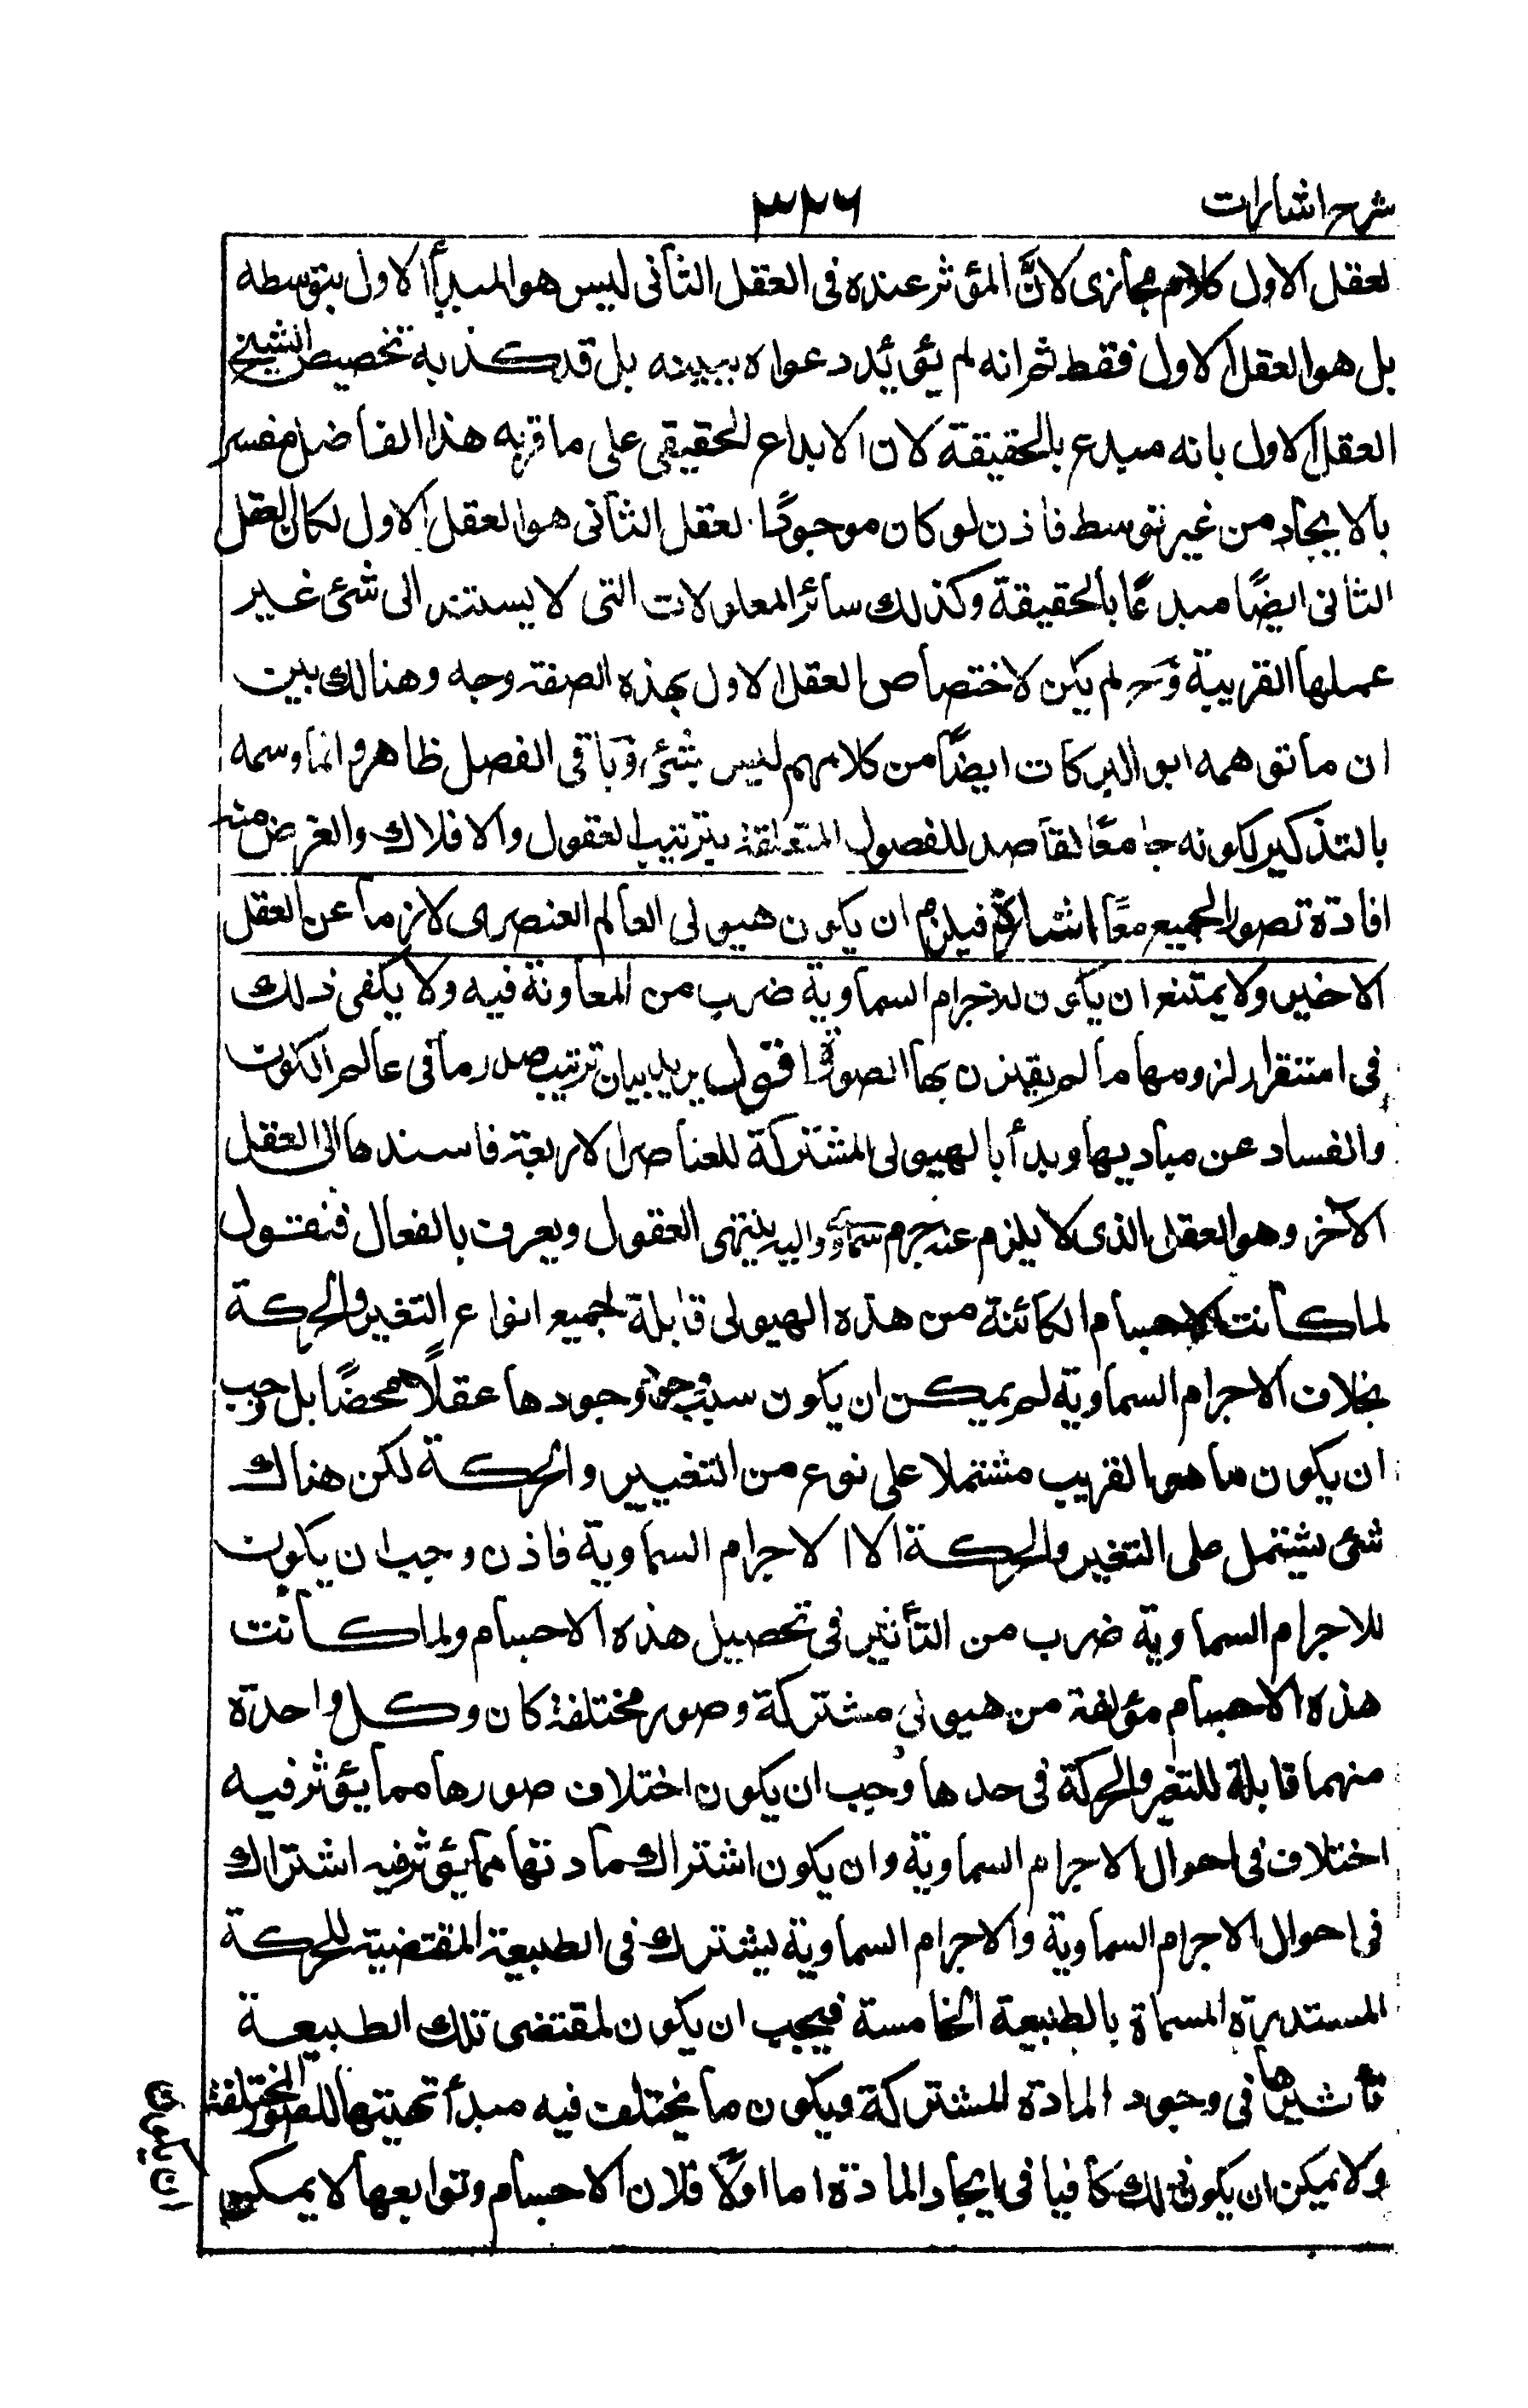 شرح اشارات
٣٢٦
لعقل الاول كلام مجازى لانَّ المؤثر عنده فى العقل الثانى ليس هو المبدأ الاول بتوسطه
بل هو العقل الاول فقط ثم انه لم يؤيد دعواه ببينه بل قد كذبه تخصيص الشيخ
العقل الاول بانه مبدع بالحقيقة لان الابداع الحقيقى على ما قربه هذا الفاضل مفسر
بالايجاد من غير توسط فاذن لو كان موجودًا لعقل الثانى هو العقل الاول لكان العقل
الثانى ايضًا مبدعًا بالحقيقة وكذلك سائر المعلولات التى لا يستند الى شئ غير
عللها القريبة وَح لم يكن لاختصاص العقل الاول بهذه الصفة وجه وهنالك بين
ان ما توهمه ابو البركات ايضًا من كلامهم ليس بشئ وباقى الفصل ظاهر وانما وسمه
بالتذكير لكونه جامعًا لمقاصد للفصول المتعلقة بترتيب العقول والافلاك والغرض منه
افادة تصور الجميع معًا اشارة فيلزم ان يكون هيولى العالم العنصرى لازما عن العقل
الاخير ولا يمتنع ان يكون للاجرام السماوية ضرب من المعاونة فيه ولا يكفى ذلك
فى استقرار لزومها ما لم يقترن بها الصورة اقول يريد بيان ترتيب صدر ما فى عالم الكون
والفساد عن مباديها وبدأ بالهيولى المشتركة للعناصر الاربعة فاسندها الى العقل
الآخر وهو العقل الذى لا يلزم عنه جرم سماوى واليه ينتهى العقول ويعرف بالفعال فنقول
لما كانت الاجسام الكائنة من هذه الهيولى قابلة لجميع انواع التغير والحركة
بخلاف الاجرام السماوية لم يمكن ان يكون سبب وجودها عقلًا محضًا بل وجب
ان يكون ما هو القريب مشتملا على نوع من التغيير والحركة لكن هناك
شئ يشتمل على التغير والحركة الا الاجرام السماوية فاذن وجب ان يكون
للاجرام السماوية ضرب من التأثير فى تحصيل هذه الاجسام ولما كانت
هذه الاجسام مؤلفة من هيولى مشتركة وصور مختلفة كان وكل واحدة
منهما قابلة للتغير والحركة فى حدها وجب ان يكون اختلاف صورها مما يؤثر فيه
اختلاف فى احوال الاجرام السماوية وان يكون اشتراك مادتها مما يؤثر فيه اشتراك
فى احوال الاجرام السماوية والاجرام السماوية يشترك فى الطبيعة المقتضية للحركة
المستديرة المسماة بالطبيعة الخامسة فيجب ان يكون لمقتضى تلك الطبيعة
تأثيرها فى وجود المادة المشتركة ويكون ما يختلف فيه مبدأ تهيئتها للصور المختلفة
ولا يمكن ان يكون ذلك كافيا فى ايجاد المادة اما اولًا فلان الاجسام وتوابعها لا يمكن
ان يكون